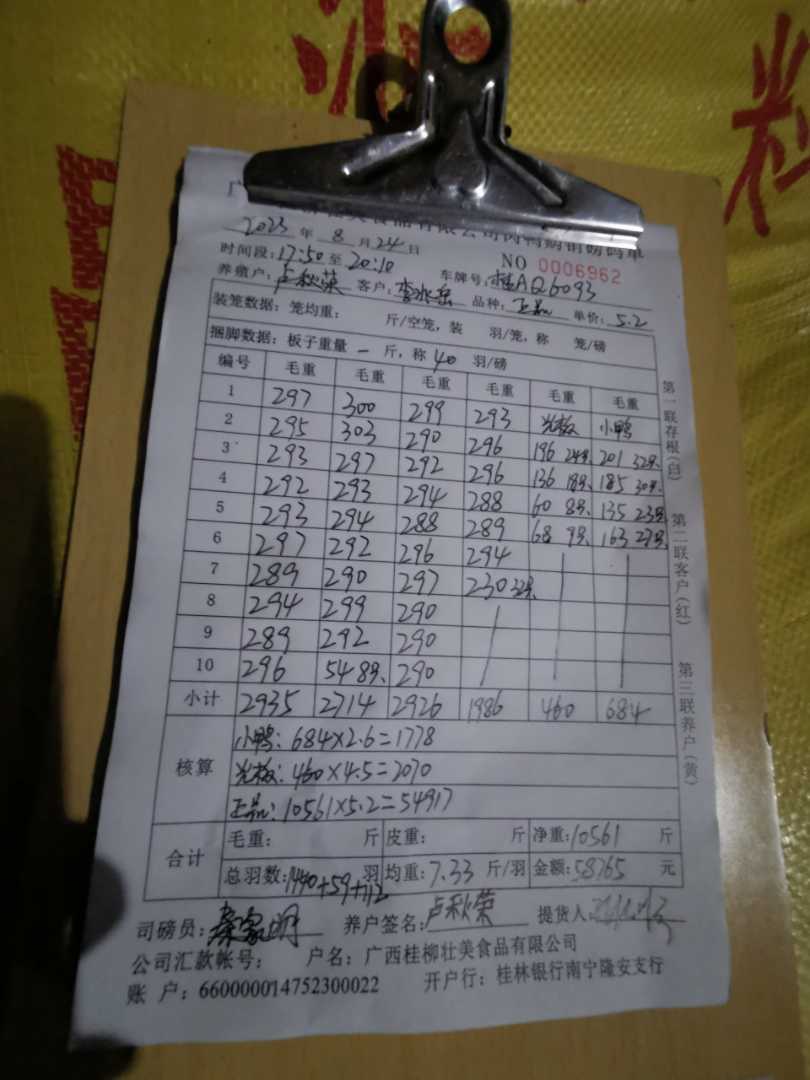 食品有限公司肉鸭朗销磅码单
2023年8月24日
NO 0006962
时间段:17:50至20:10 车牌号:桂AQ6093
养户:卢秋荣 客户: 品种:正品 单价:5.2
装笼数据:笼均重: 斤/空笼,装 羽/笼,称 笼/磅
捆脚数据:板子重量 一 斤,称 40 羽/磅
编号 毛重 毛重 毛重 毛重 毛重 毛重
1 297 300 299 293 光板 小鸭
2 295 303 290 296 196 24只 201 32只
3 293 297 292 296 136 18只 185 30只
4 292 293 294 288 60 8只 135 23只
5 293 294 288 289 68 9只 163 27只
6 297 292 296 294
7 289 290 297 230 32只
8 294 299 290
9 289 292 290
10 296 54 8只 290
小计 2935 2714 2926 1986 460 684
核算
小鸭:684×2.6=1778
光板:460×4.5=2070
正品:10561×5.2=54917
合计
毛重: 斤 皮重: 斤 净重:10561 斤
总羽数:1440+59+112 羽 均重:7.33 斤/羽 金额:58765 元
司磅员: 养户签名:卢秋荣 提货人
公司汇款帐号: 户名:广西桂柳壮美食品有限公司
账户:660000014752300022 开户行:桂林银行南宁隆安支行
第一联存根(白)
第二联客户(红)
第三联养户(黄)
粒